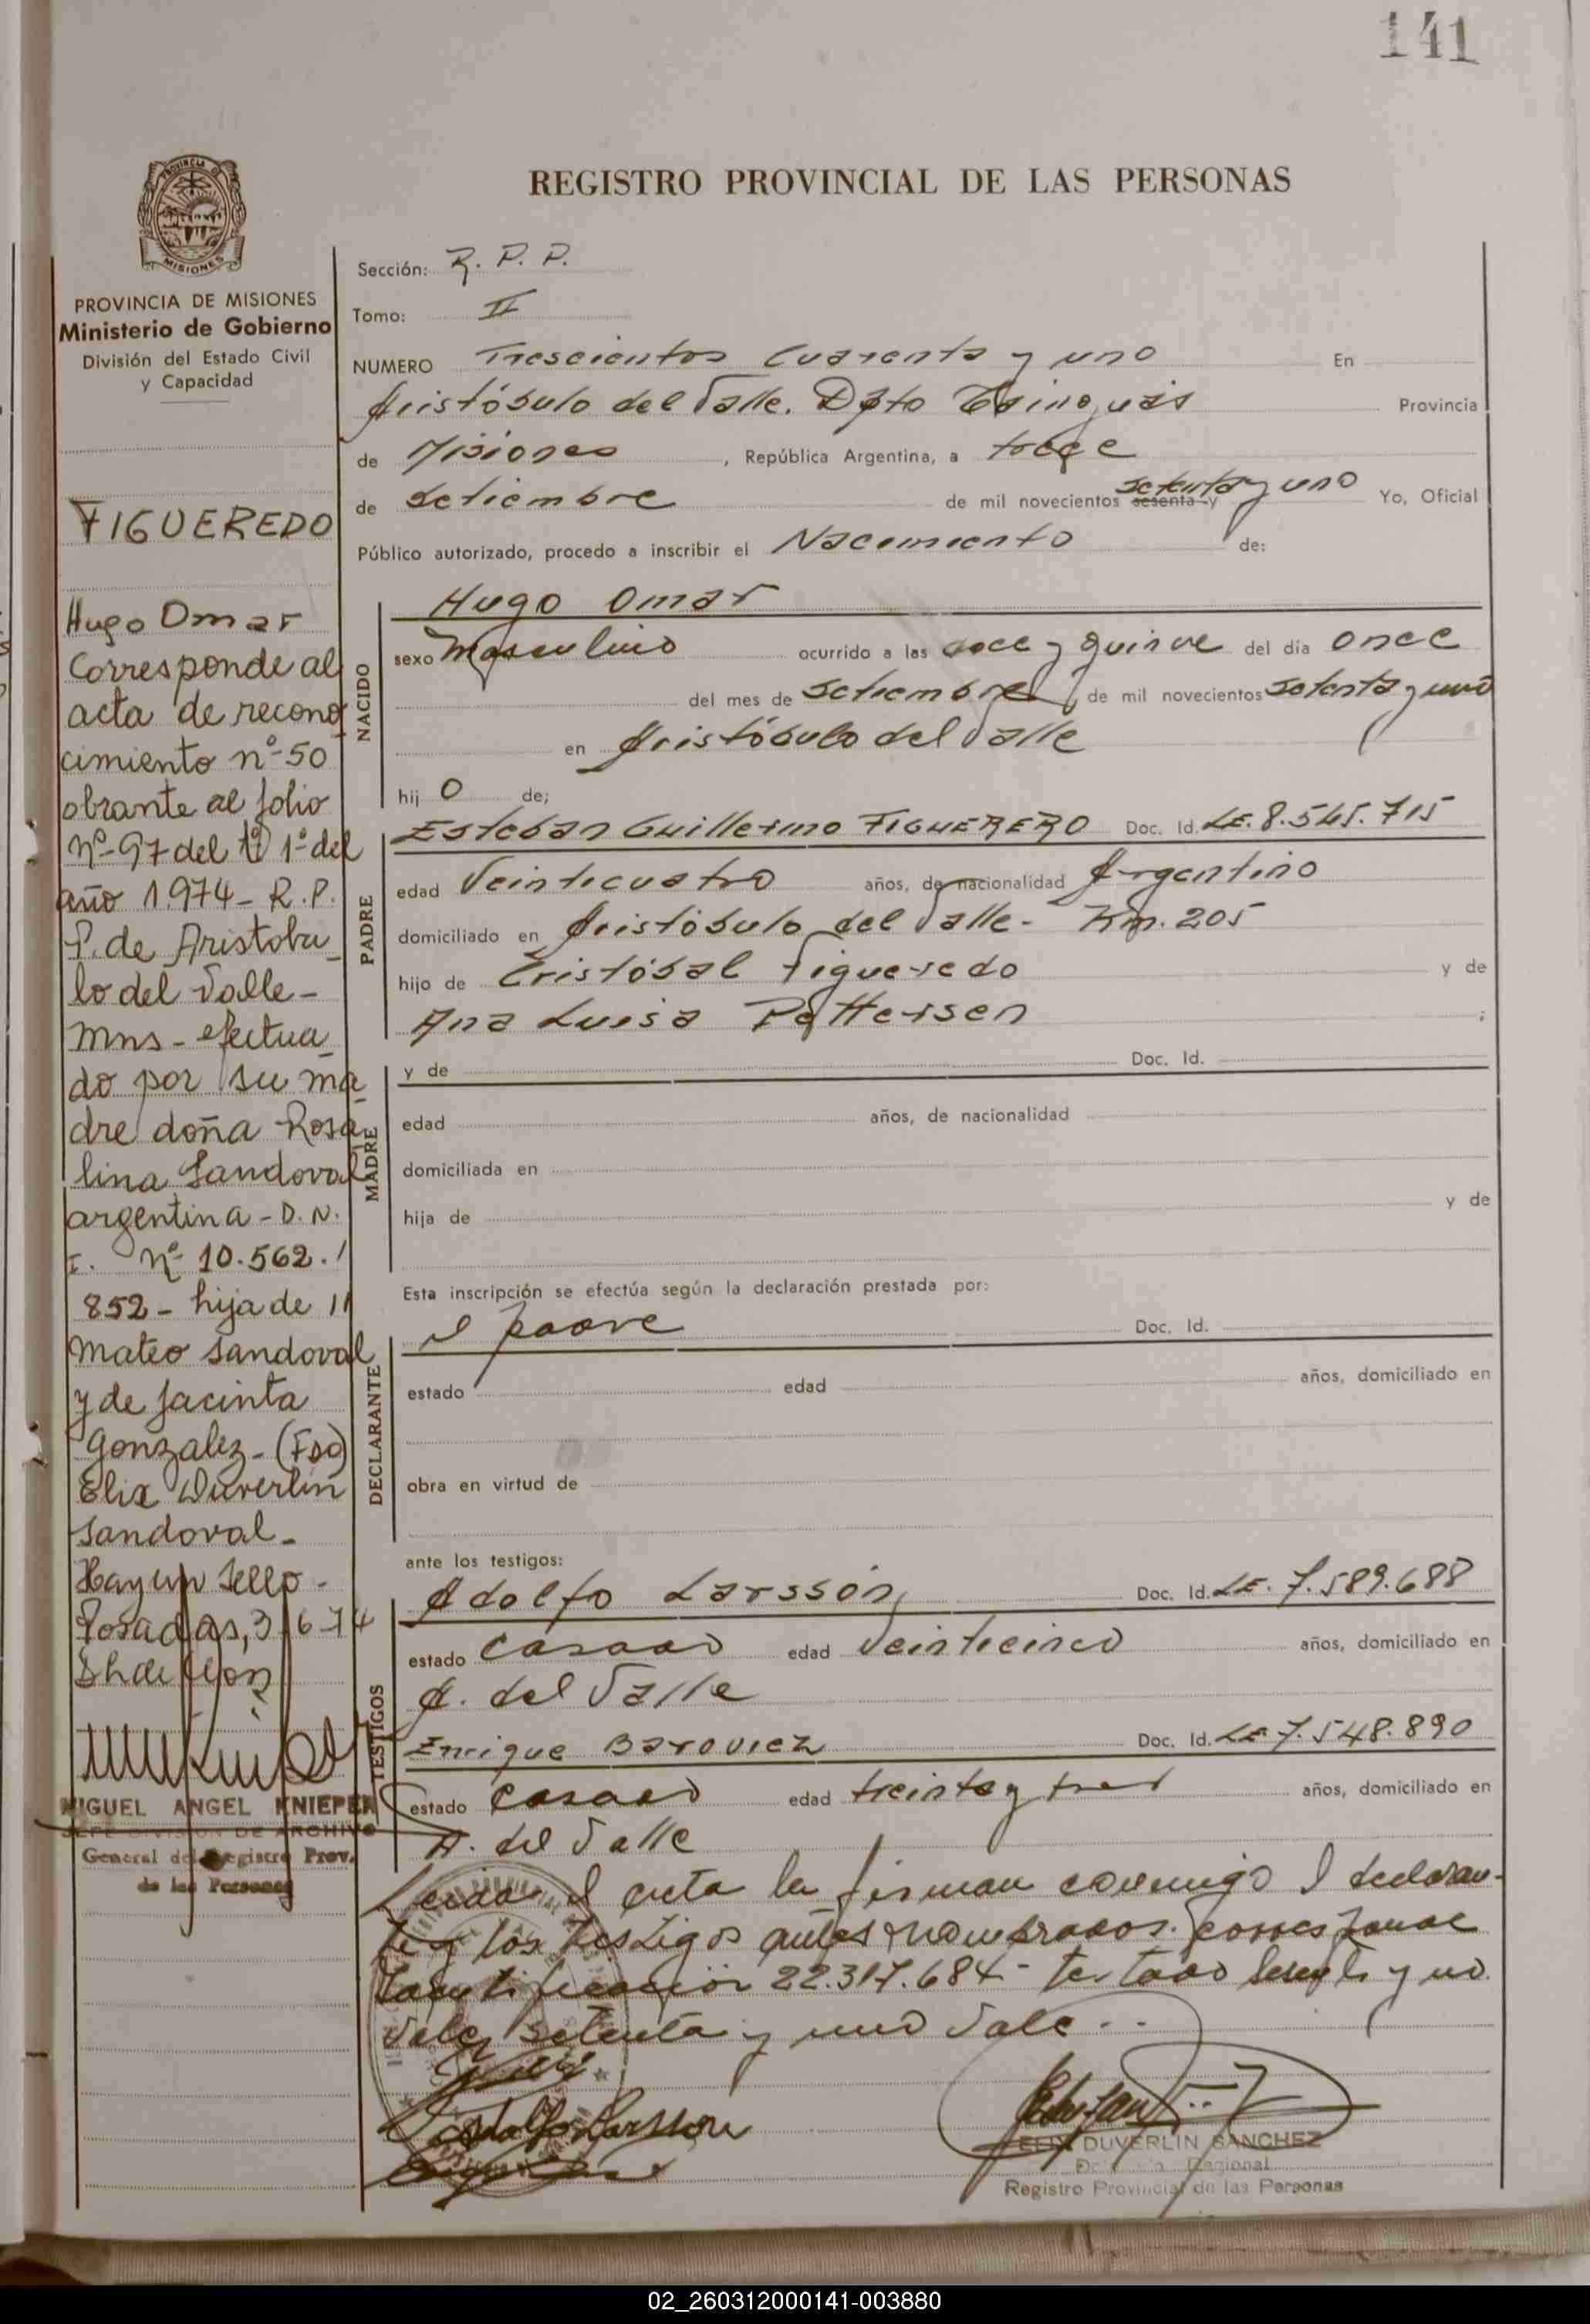 141
REGISTRO PROVINCIAL DE LAS PERSONAS
PROVINCIA DE MISIONES
Ministerio de Gobierno
División del Estado Civil
y Capacidad
FIGUEREDO
Hugo Omar
Corresponde al
acta de recono
cimiento nº 50
obrante al folio
Nº 97 del tº 1º del
año 1.974 - R.P.
P. de Aristobu_
lo del Valle -
Mns - efectua_
do por su ma_
dre doña Rosa_
lina Sandoval
argentina - D.N.
I. Nº 10.562.
852 - hija de
Mateo Sandoval
y de Jacinta
Gonzalez - (Fdo)
Elix Duverlin
Sandoval -
Hay un sello -
Posadas, 3-6-74
MIGUEL ANGEL KNIEPER
JEFE DIVISION DE ARCHIVO
General del Registro Prov.
de las Personas
Sección: R. P. P.
Tomo: II
NUMERO Trescientos Cuarenta y uno En
Aristóbulo del Valle. Dpto Cainguás Provincia
de Misiones, República Argentina, a trece
de Setiembre de mil novecientos sesenta y setenta y uno Yo, Oficial
Público autorizado, procedo a inscribir el Nacimiento de:
NACIDO
Hugo Omar
sexo Masculino ocurrido a las doce y quince del día once
del mes de Setiembre de mil novecientos setenta y uno
en Aristóbulo del Valle
hij o de;
PADRE
Esteban Guillermo FIGUERERO Doc. Id. LE. 8.545.715
edad Veinticuatro años, de nacionalidad Argentino
domiciliado en Aristóbulo del Valle - Km. 205
hijo de Cristóbal Figueredo y de
Ana Luisa Pattersen ;
MADRE
y de Doc. Id.
edad años, de nacionalidad
domiciliada en
hija de y de
Esta inscripción se efectúa según la declaración prestada por:
DECLARANTE
el padre Doc. Id.
estado edad años, domiciliado en
obra en virtud de
ante los testigos:
TESTIGOS
Adolfo Larssón, Doc. Id. LE. 7.589.688
estado Casado edad Veinticinco años, domiciliado en
A. del Valle
Enrique Barovicz Doc. Id. LE 7.548.890
estado Casado edad treinta y tres años, domiciliado en
A. del Valle
Leida el acta la firman conmigo el declaran-
te y los testigos antes nombrados. Corresponde
Identificación 22.317.684 - testado sesenta y no
vale, setenta y uno Vale - -
Adolfo Larsson
ELIX DUVERLIN SANCHEZ
Regional
Registro Provincial de las Personas
02_260312000141-003880